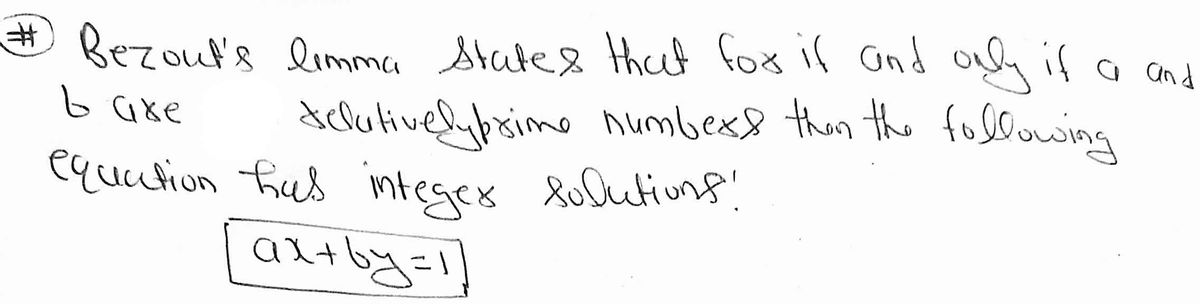 # Bezout's lemma states that for if and only if a and
b are relatively prime numbers then the following
equation has integer solutions!
ax+by=1